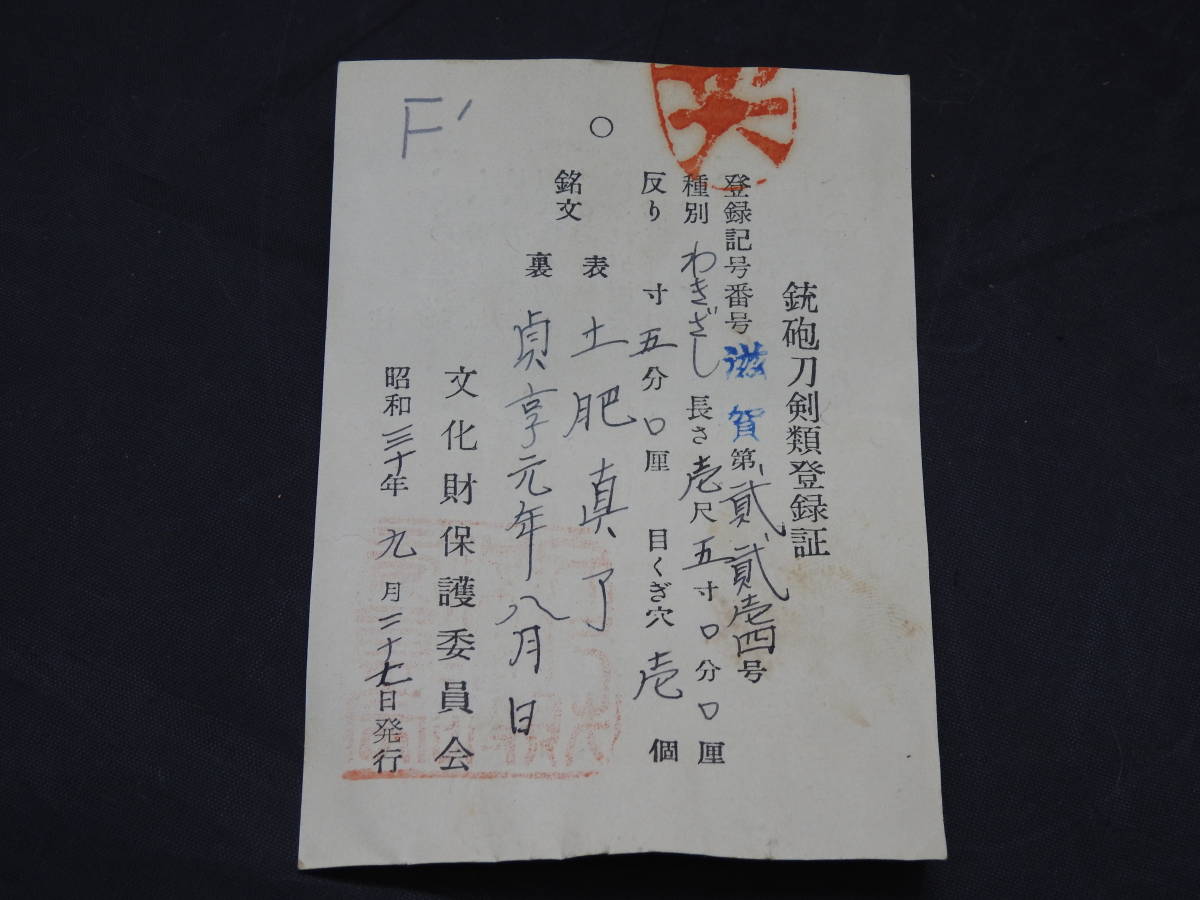 銃砲刀剣類登録証
登録記号番号 滋賀 第貳貳壱四号
種別 わきざし 長さ 壱尺五寸〇分〇厘
反り 寸五分〇厘 目くぎ穴 壱個
〇
銘文 表 土肥真了
裏 貞享元年八月日
文化財保護委員会
昭和三十年九月二十七日発行
F'